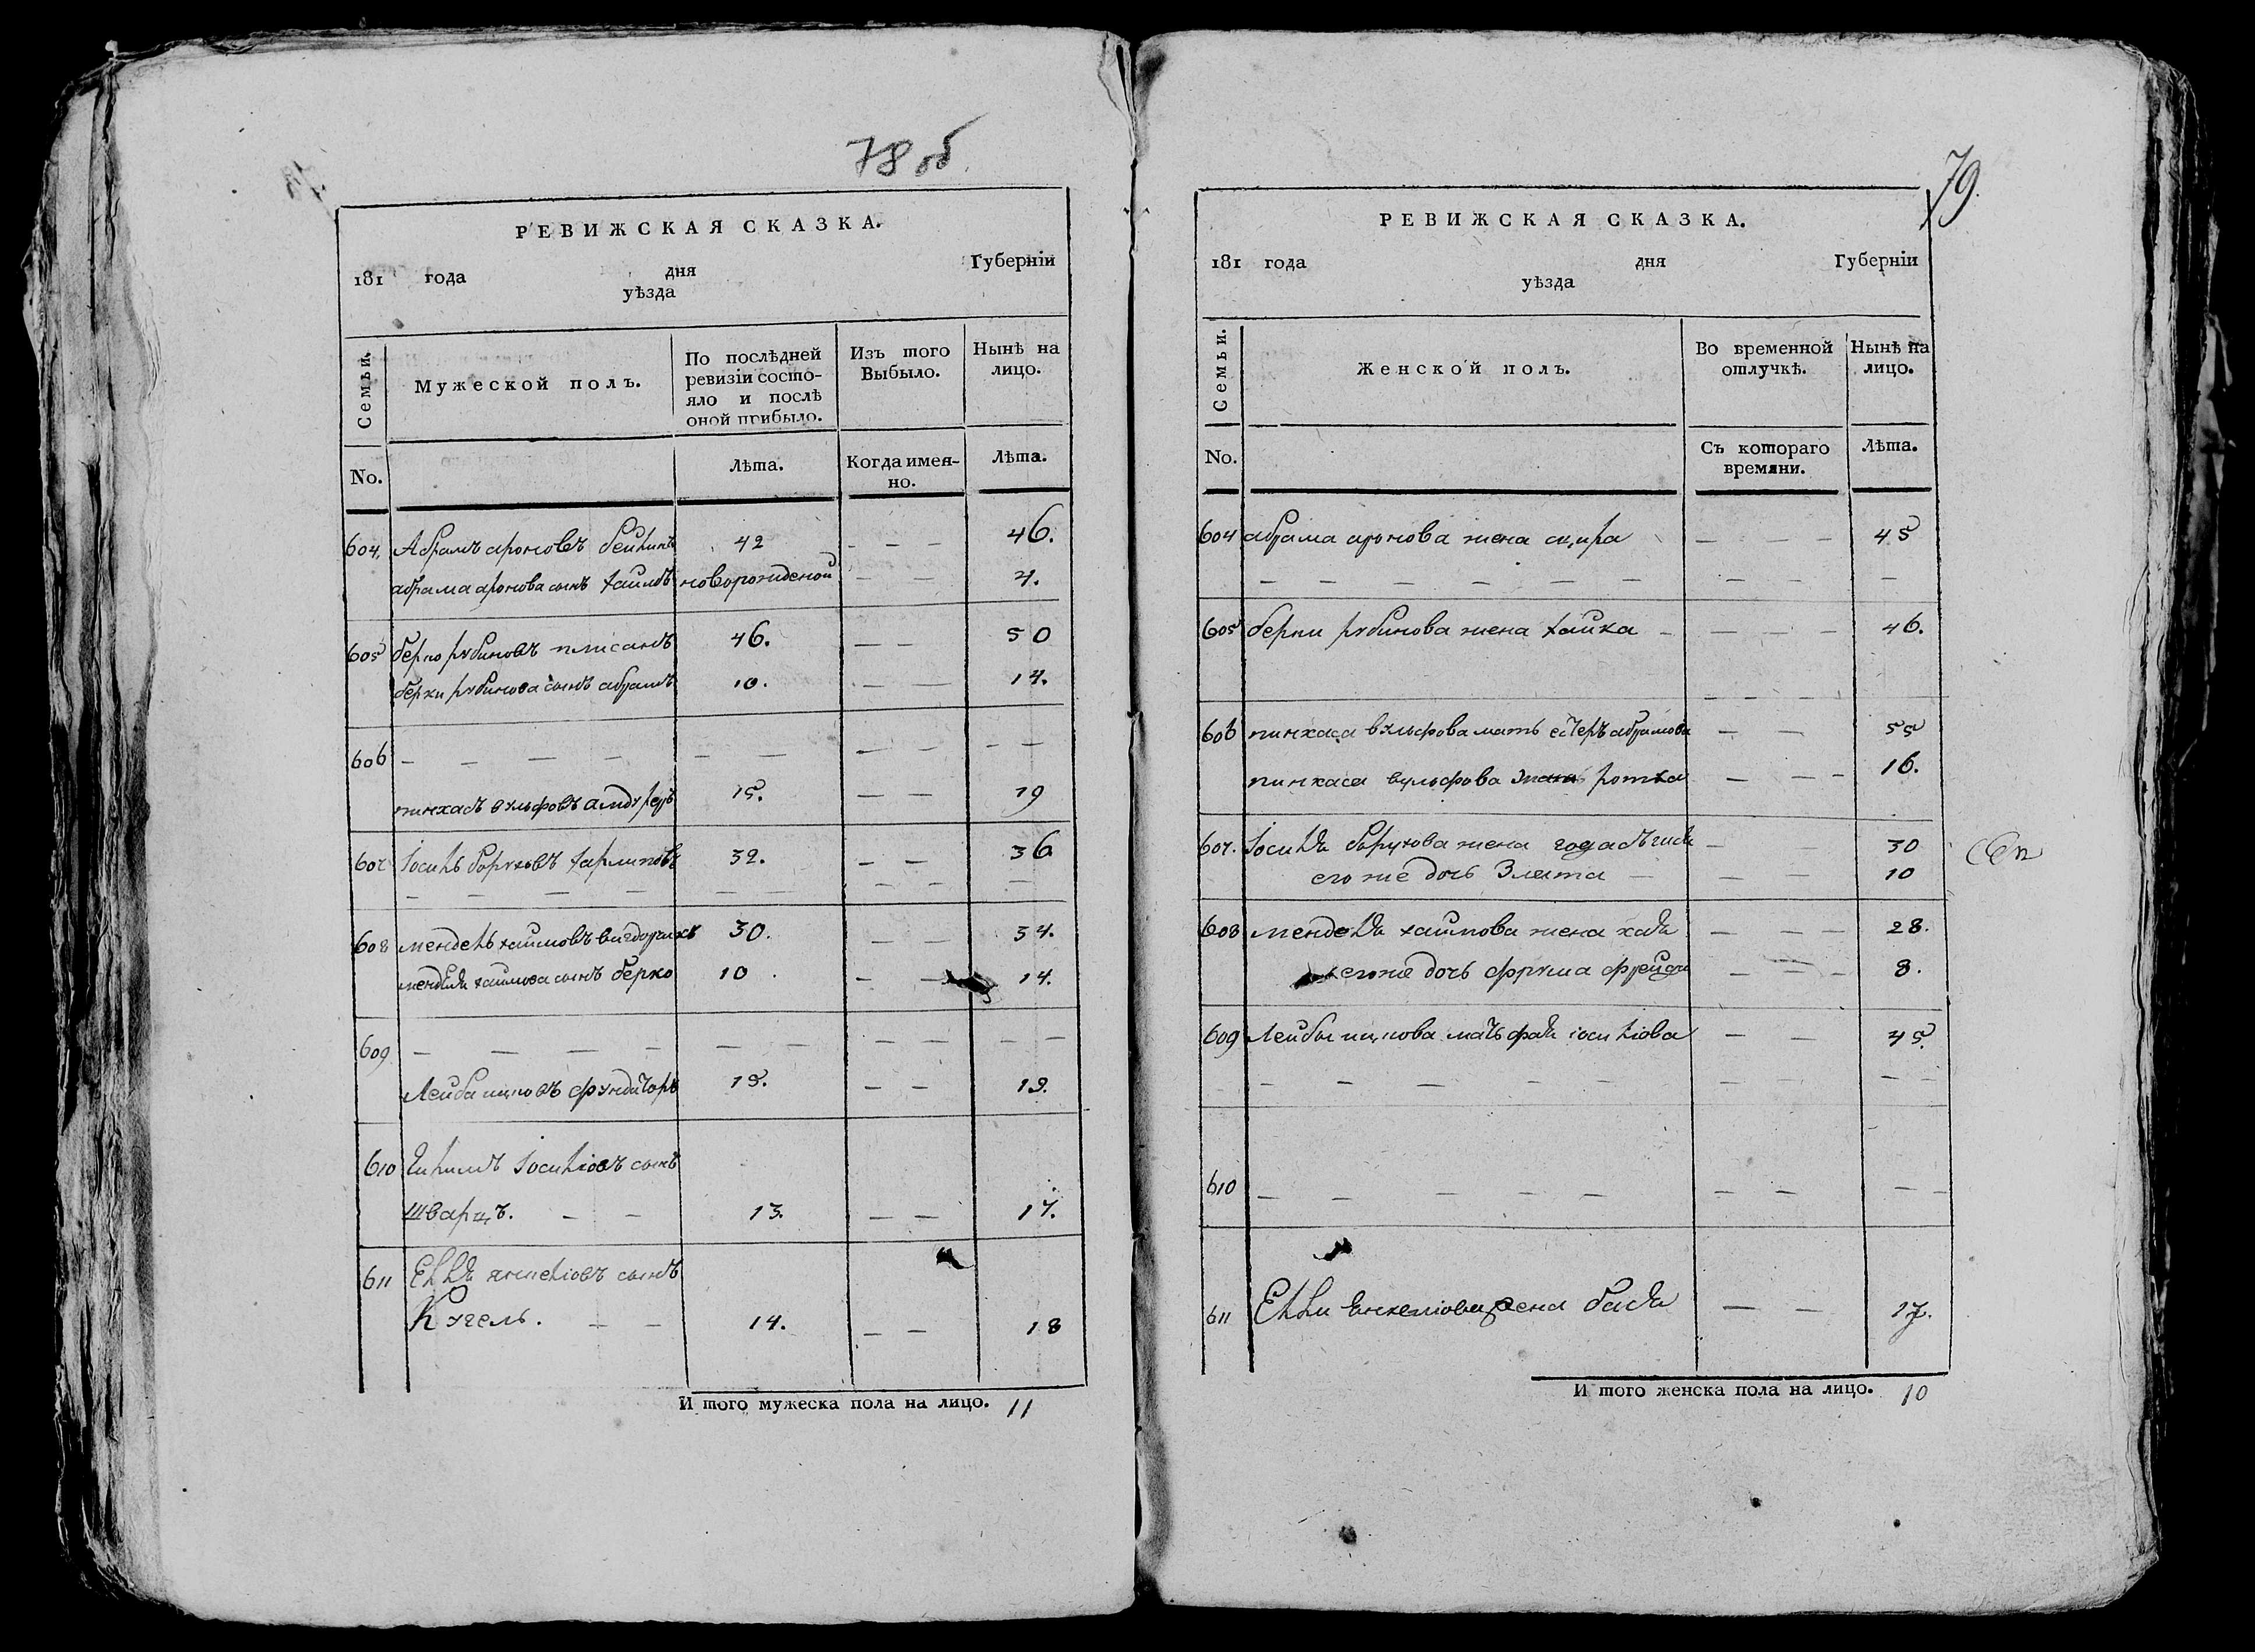 78 об.
РЕВИЖСКАЯ СКАЗКА.
181 года дня Губерніи
уѣзда
Семьи.
Мужеской полъ.
По послѣдней ревизіи состо-
яло и послѣ оной прибыло.
Изъ того Выбыло.
Нынѣ на лицо.
No.
Лѣта.
Когда имен-
но.
Лѣта.
604, Абрамъ ароновъ 42 — — — 46.
абрама аронова сынъ хаимъ новорожденой — — 4.
605 берко рубиновъ 46. — — 50
берки рубинова сынъ абрамъ 10. — — 14.
606 — — — — — — — — — —
пинхасъ вульфовъ 15. — — 19
607 Іосиль боруховъ 32. — — 36
— — — — — — — — —
608 мендель хаимовъ 30. — — 34.
менделя хаимова сынъ берко 10. — — 14.
609 — — — — — — — — — —
Лейба ицковъ 15. — — 19.
610 сынъ
Шварцъ. — — 13. — — 17.
611 сынъ
Кугель. — — 14. — — 18
И того мужеска пола на лицо. 11
79.
РЕВИЖСКАЯ СКАЗКА.
181 года дня Губерніи
уѣзда
Семьи.
Женской полъ.
Во временной отлучкѣ.
Нынѣ на лицо.
No.
Съ котораго времяни.
Лѣта.
604 абрама аронова жена — — — 45
— — — — — — — — — —
605 берки рубинова жена хайка — — — — 46.
— — —
606 пинхаса вульфова мать естеръ абрамова — — 55
пинхаса вульфова жена — — — 16.
607. Іосиля борухова жена — — 30
его же дочь Злата — — — 10
608 менделя хаимова жена хая — — — 28.
его же дочь фрума — — — 8.
609 Лейбы ицкова мать — — 45.
— — — — — — — — — —
610 — — — — — — — — —
611 жена бася — — 17.
И того женска пола на лицо. 10